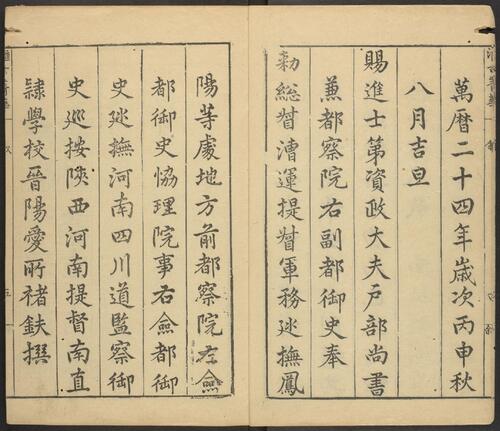 萬暦二十四年歳次丙申秋
八月吉旦
賜進士第資政大夫戶部尚書
兼都察院右副都御史奉
勑総督漕運提督軍務廵撫鳳
陽等處地方前都察院左僉
都御史恊理院事右僉都御
史廵撫河南四川道監察御
史廵按陝西河南提督南直
隸學校晉陽愛所褚鈇撰